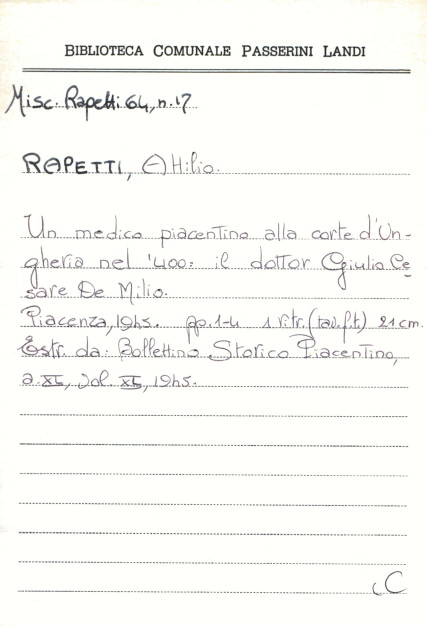 BIBLIOTECA COMUNALE PASSERINI LANDI
Misc. Rapetti 64, n. 17
RAPETTI, Attilio.
Un medico piacentino alla corte d'Un-
gheria nel '400: il dottor Giulio Ce-
sare De Milio.
Piacenza, 1945. pp. 1-4 1 ritr. (tav. f.t.) 21 cm.
Estr. da: Bollettino Storico Piacentino,
a. XL, vol. XL, 1945.
C